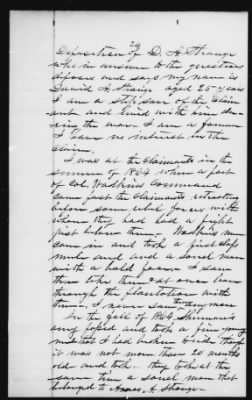 24
Deposition of D. A. Strange
who in answer to the questions
deposes and says my name is
David A. Strange aged 25 years
I am a step son of the claim
ant and lived with him du
ring the war. I am a farmer
I have no interest in the
claim.
I was at the claimants in the
summer of 1864 when a part
of Col Watkins command
came past the claimants retreating
before some rebel forces with
whom they had had a fight
just below there. Watkins men
came in and took a first class
mule and and a sorrel mare
with a bald face. I saw
them take them and at once leave
through the plantation with
them. I never saw them more
In the fall of 1864 Sherman's
army passed and took a fine young
mule that I had broken
it was not more than 20 months
old and took. They took at the
same time a sorrel mare that
belonged to A. Strange